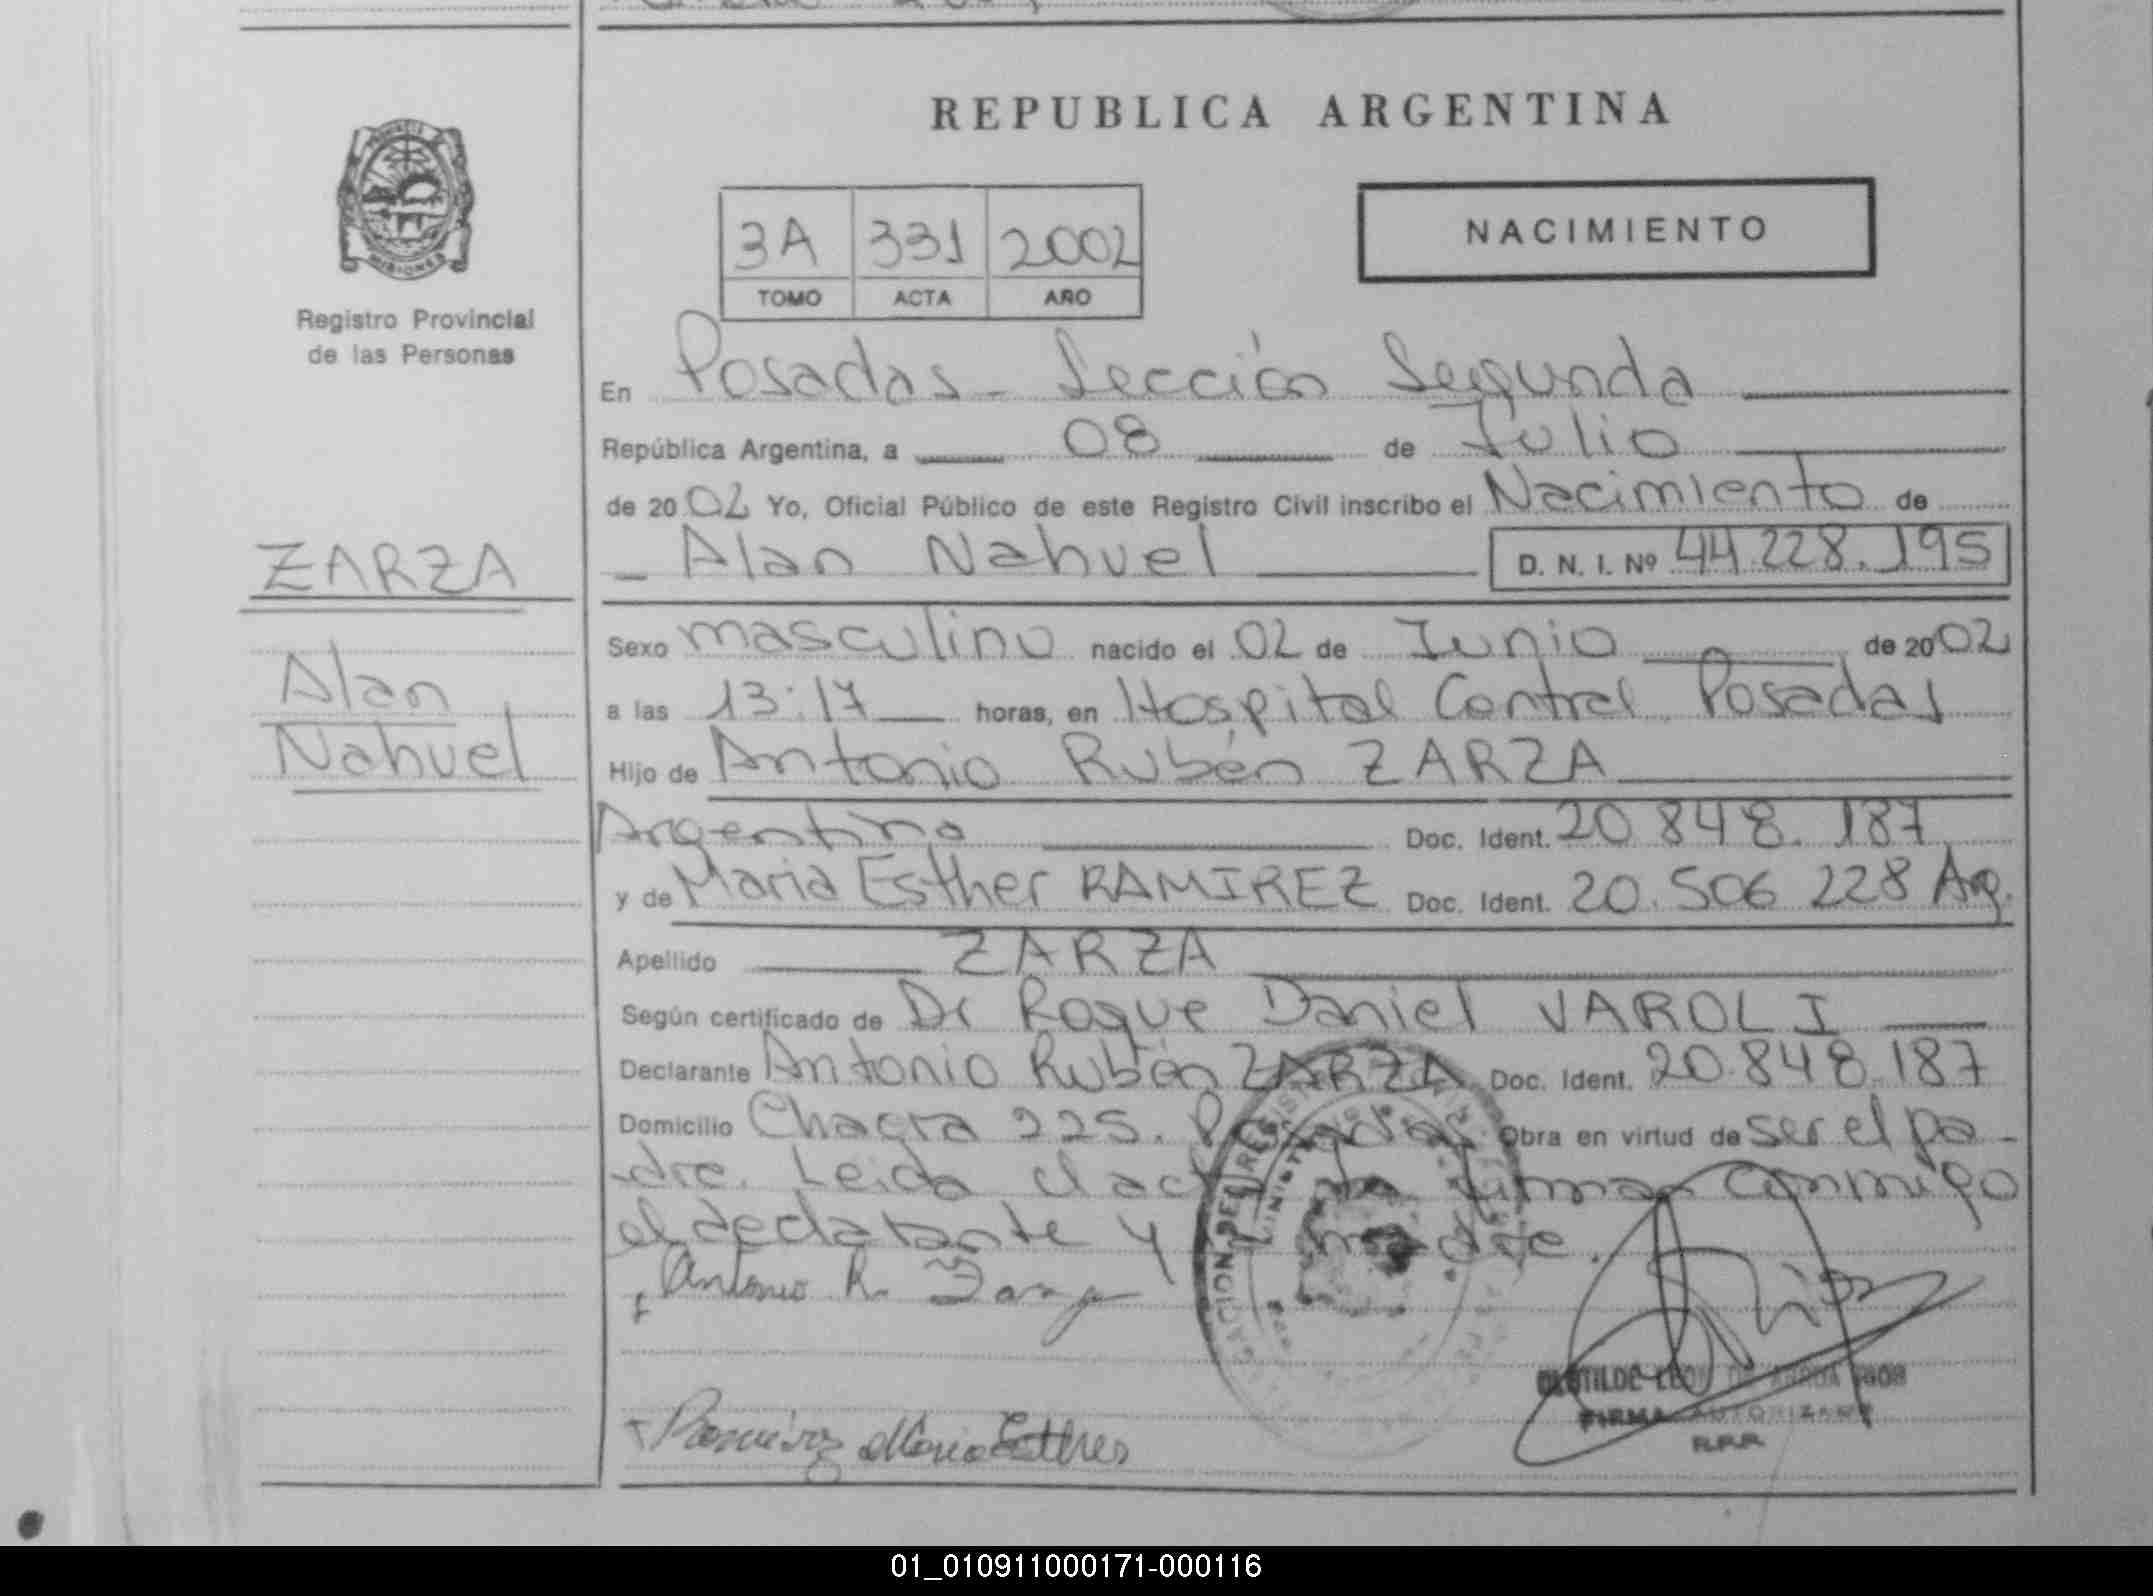 REPUBLICA ARGENTINA
MISIONES
Registro Provincial
de las Personas
3A 331 2002
TOMO ACTA AÑO
NACIMIENTO
En Posadas - Sección Segunda
República Argentina, a 08 de Julio
de 2002 Yo, Oficial Público de este Registro Civil inscribo el Nacimiento de
Alan Nahuel D. N. I. Nº 44.228.195
ZARZA
Alan
Nahuel
Sexo masculino nacido el 02 de Junio de 2002
a las 13:17 horas, en Hospital Central Posadas
Hijo de Antonio Rubén ZARZA
Argentina Doc. Ident. 20.848.187
y de Maria Esther RAMIREZ Doc. Ident. 20.506.228 Arg.
Apellido ZARZA
Según certificado de Dr Roque Daniel VAROLI
Declarante Antonio Rubén ZARZA Doc. Ident. 20.848.187
Domicilio Chacra 225. Posadas Obra en virtud de ser el pa-
dre. Leida el acta firman conmigo
el declarante y madre.
Antonio R. Zarza
Ramirez Maria Esther
CLOTILDE LEON DE
FIRMA AUTORIZADA
R.P.P.
01_010911000171-000116